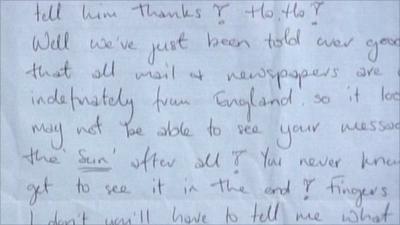 tell him thanks? Ho, Ho?
Well we've just been told over good
that all mail & newspapers are
indefinately from England, so it loo
may not be able to see your messag
the 'Sun' after all? You never know
get to see it in the end? Fingers
I don't you'll have to tell me what